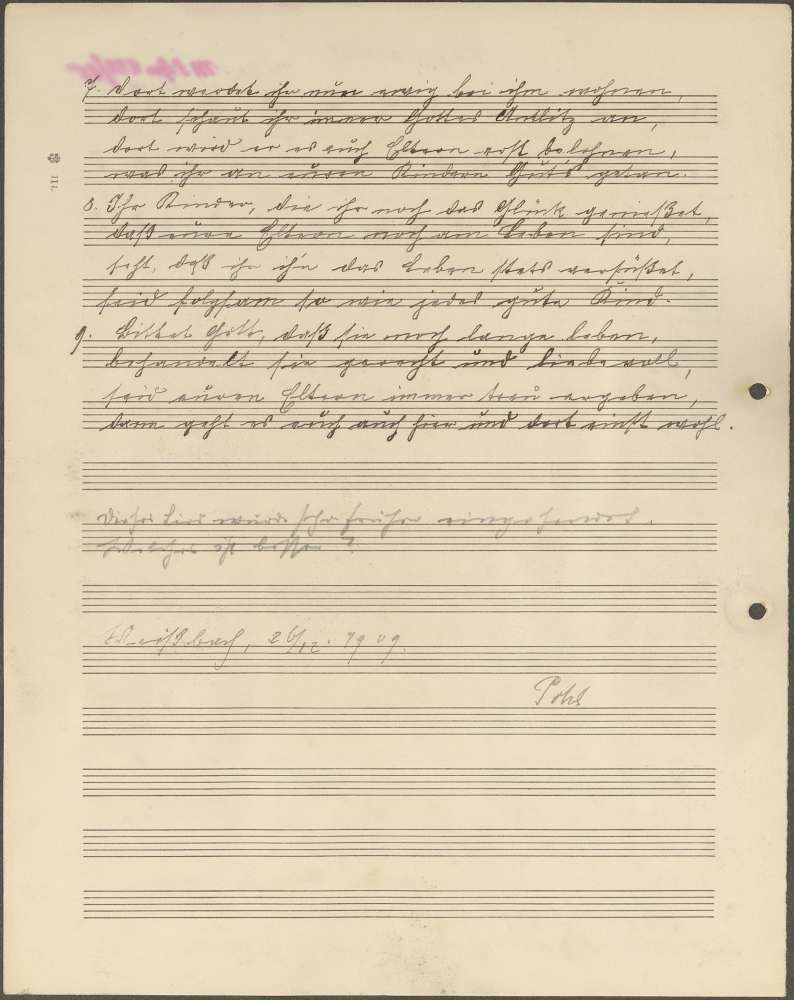 7. Dort werdet ihr nun ewig bei ihm wohnen,
dort schaut ihr immer Gottes Antlitz an,
dort wird er es euch Eltern erst belohnen,
was ihr an euren Kindern Gut's getan.
8. Ihr Kinder, die ihr noch das Glück genießet,
daß eure Eltern noch am Leben sind,
seht, daß ihr ih'n das Leben stets versüßet,
seid folgsam so wie jedes gute Kind.
9. Bittet Gott, daß sie noch lange leben,
behandelt sie gerecht und liebevoll,
seid euren Eltern immer treu ergeben,
dann geht es euch auch hier und dort einst wohl.
Dieses Lied wurde schon früher eingesendet.
Welches ist besser?
Weißbach, 26/12. 1909.
Pohl
III.